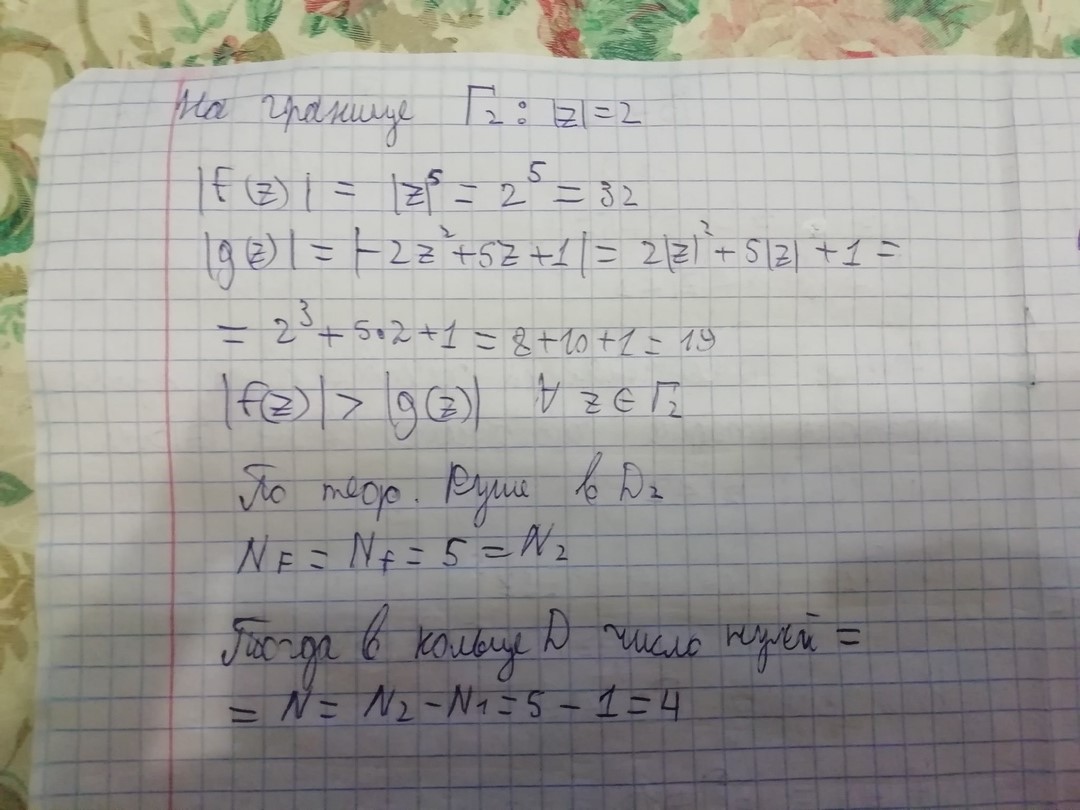 На границе Γ₂: |z|=2
|f(z)| = |z|⁵ = 2⁵ = 32
|g(z)| = |-2z²+5z+1| = 2|z|²+5|z|+1 =
= 2³+5•2+1 = 8+10+1 = 19
|f(z)| > |g(z)| ∀ z ∈ Γ₂
По теор. Руше в D₂
N_F = N_f = 5 = N₂
Тогда в кольце D число нулей =
= N = N₂-N₁=5-1=4